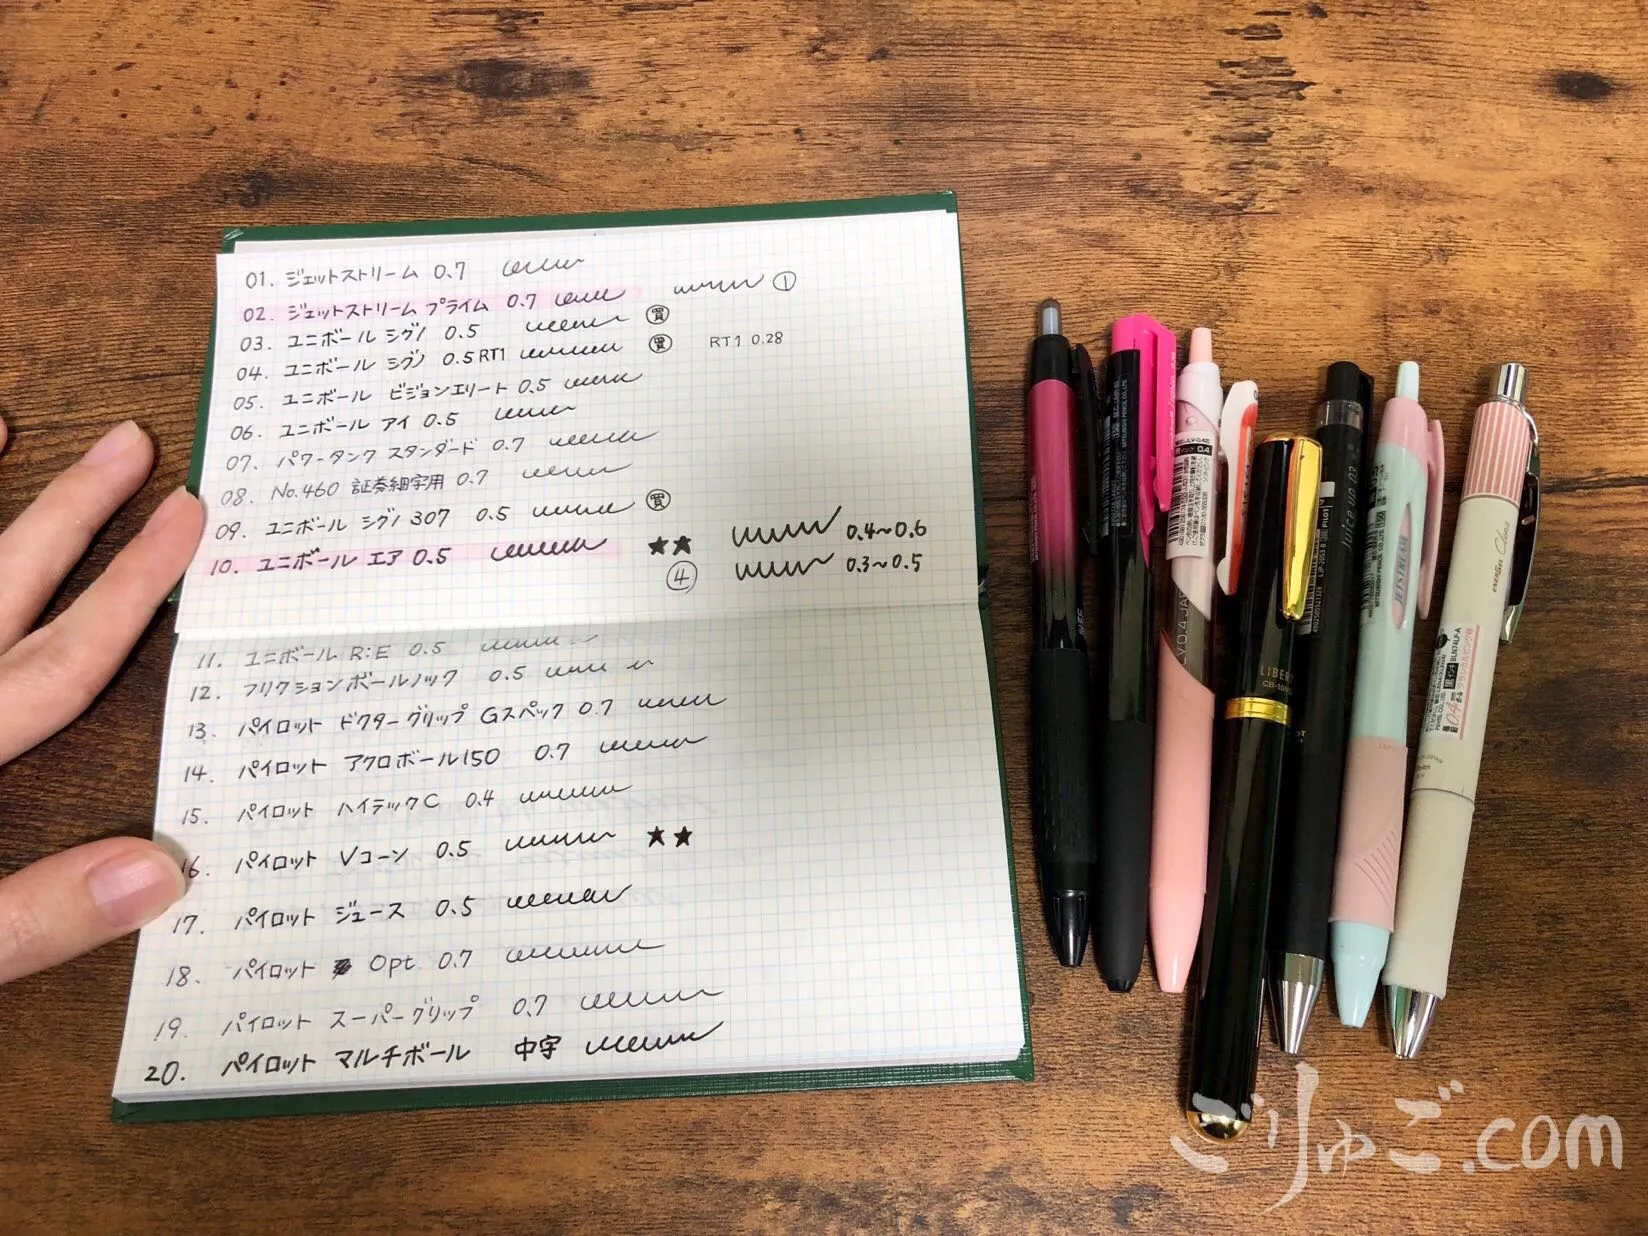 01. ジェットストリーム 0.7
02. ジェットストリーム プライム 0.7 ①
03. ユニボール シグノ 0.5 買
04. ユニボール シグノ 0.5 RT1 買 RT1 0.28
05. ユニボール ビジョンエリート 0.5
06. ユニボール アイ 0.5
07. パワータンク スタンダード 0.7
08. No.460 証券細字用 0.7
09. ユニボール シグノ 307 0.5 買
10. ユニボール エア 0.5 ★★ 0.4~0.6
④ 0.3~0.5
11. ユニボール R:E 0.5
12. フリクションボールノック 0.5
13. パイロット ドクターグリップ Gスペック 0.7
14. パイロット アクロボール150 0.7
15. パイロット ハイテックC 0.4
16. パイロット Vコーン 0.5 ★★
17. パイロット ジュース 0.5
18. パイロット Opt 0.7
19. パイロット スーパーグリップ 0.7
20. パイロット マルチボール 中字
0.4
LIBERT
Juice up 03
PILOT
JETSTREAM
黒インキ BLN74LP-A
0.4
ごりゅご.com